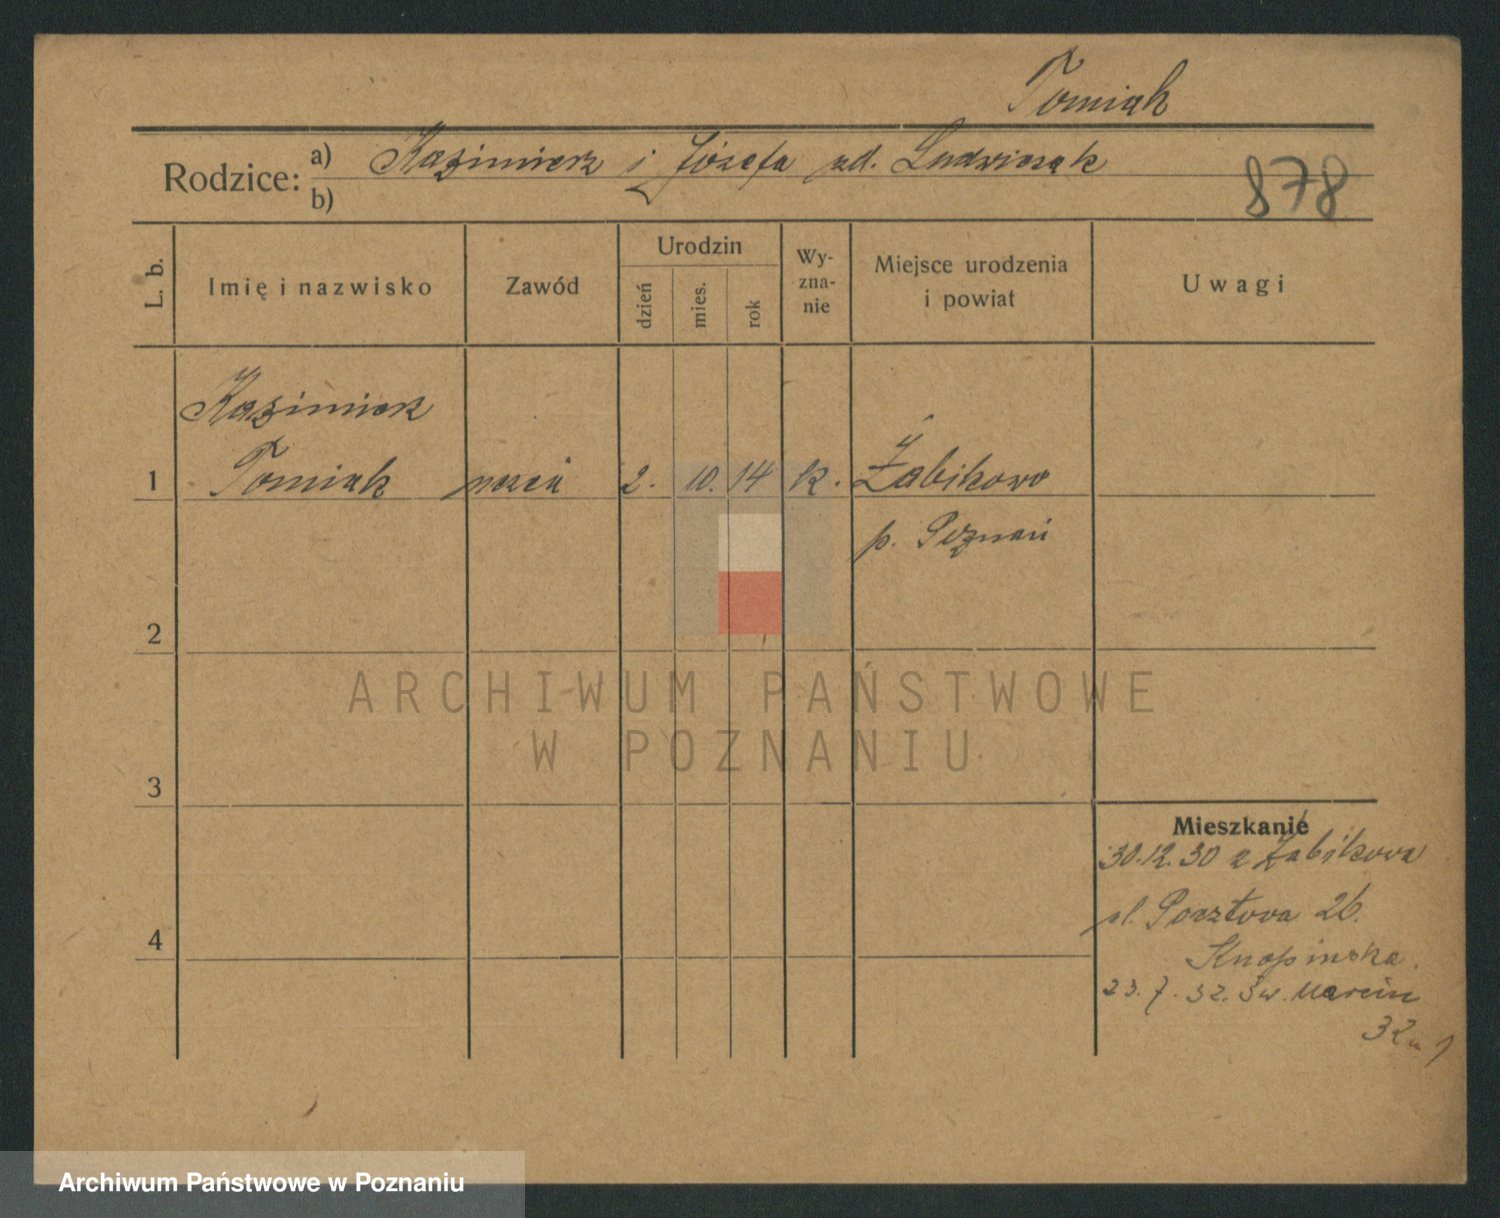 Tomiak
Rodzice: a) Kazimierz i Józefa zd. Ludwiczak
b)
878
L. b. Imię i nazwisko Zawód Urodzin dzień mies. rok Wy-zna-nie Miejsce urodzenia i powiat Uwagi
Kazimierz
1 Tomiak uczeń 2. 10. 14 k. Żabikowo
p. Poznań
2
ARCHIWUM PAŃSTWOWE
W POZNANIU
3
Mieszkanie
30.12.30 z Żabikowa
ul. Pocztowa 26.
4
Knopinska.
23.7.32. Św. Marcin
32
Archiwum Państwowe w Poznaniu